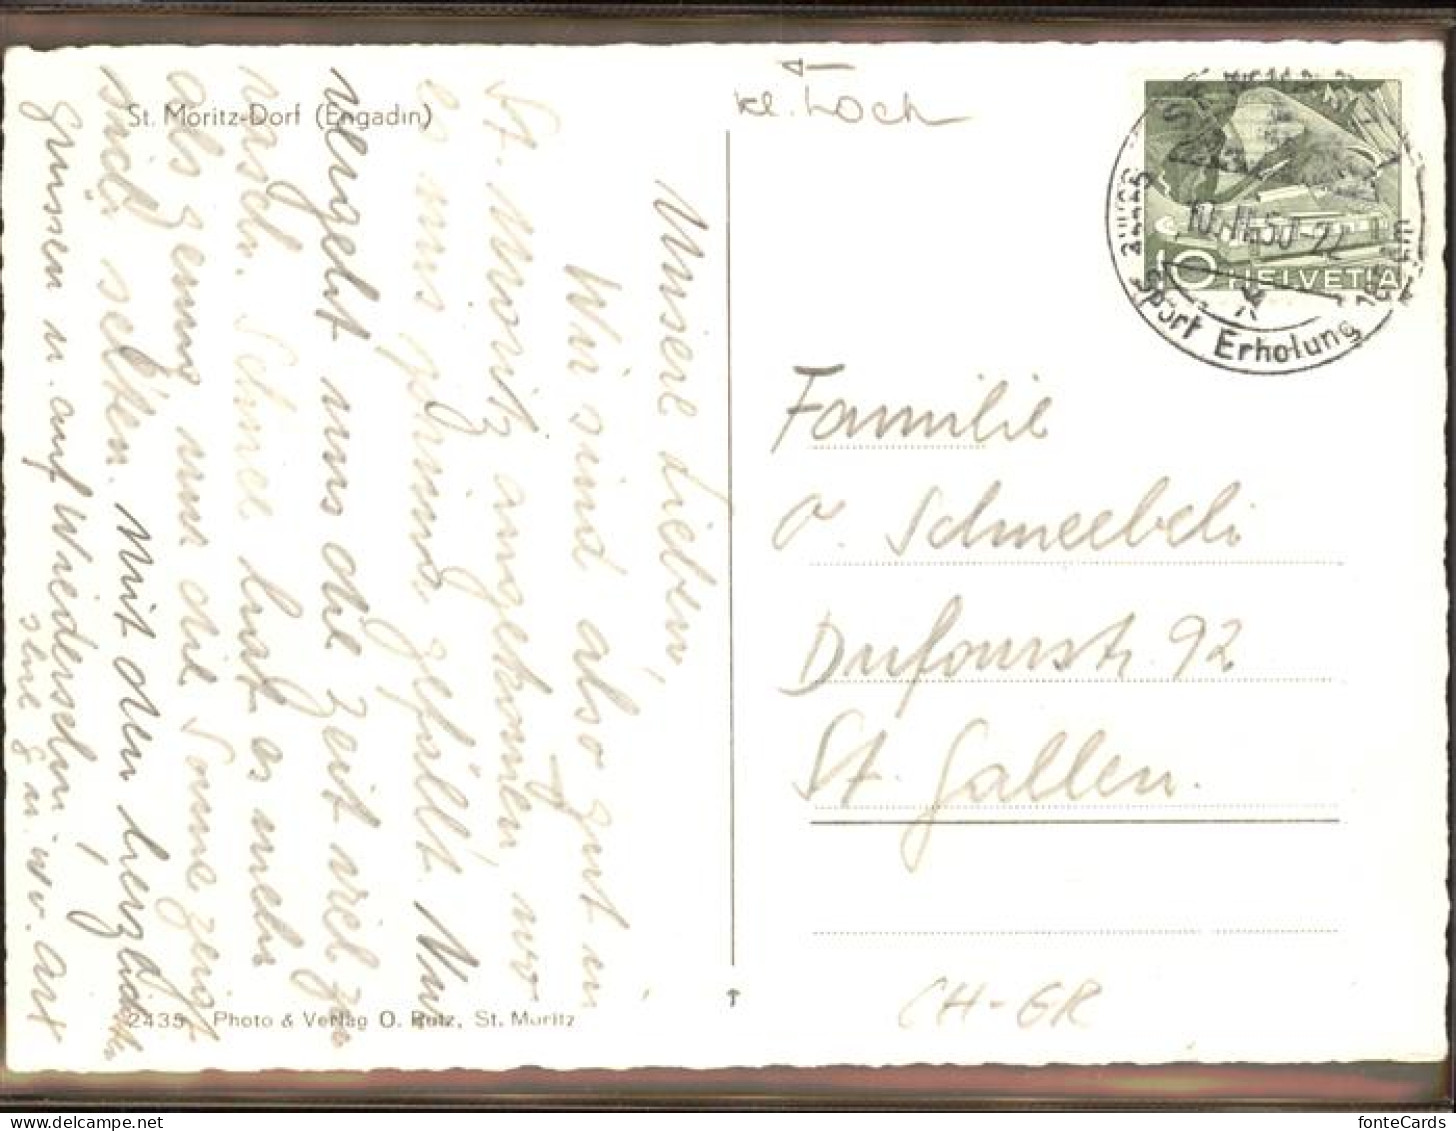 St. Moritz-Dorf (Engadin)
Unsere Lieben,
Wir sind also gut in
St. Moritz angekommen, wo
es uns prima gefällt. Nur
vergeht uns die Zeit viel zu
rasch. Schnee hat es mehr
als genug nur die Sonne zeigt
sich selten. Mit den herzlichsten
Grüssen u. auf Wiedersehn,
2435 Photo & Verlag O. Rutz, St. Moritz
kl. Loch
10 HELVETIA
10.II.50-22
Sport Erholung
Familie
O. Schneebeli
Dufourstr. 92
St. Gallen.
CH-GR
fonteCards